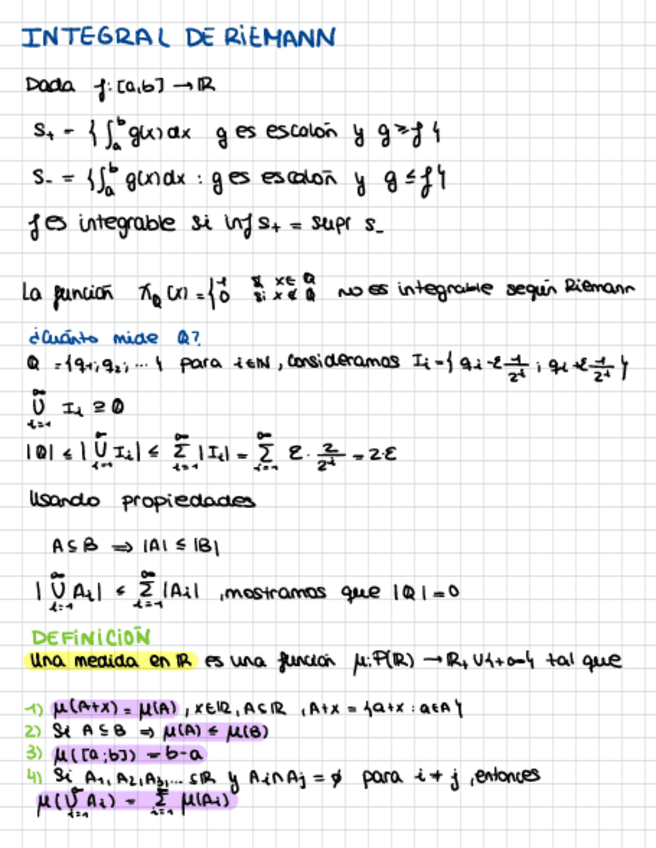 INTEGRAL DE RIEMANN
Dada f: [a,b] → ℝ
S₊ = {∫ₐᵇ g(x) dx g es escalón y g ≥ f}
S₋ = {∫ₐᵇ g(x) dx : g es escalón y g ≤ f}
f es integrable si inf S₊ = supr S₋
La función χ_Q (x) = {1 si x ∈ Q, 0 si x ∉ Q no es integrable según Riemann
¿Cuánto mide Q?
Q = {q₁, q₂, ...} para i ∈ ℕ, consideramos Iᵢ = {qᵢ - ε 1/2ⁱ ; qᵢ + ε 1/2ⁱ}
∞∪i=1 Iᵢ ⊇ Q
|Q| ≤ |∞∪i=1 Iᵢ| ≤ ∞Σi=1 |Iᵢ| = ∞Σi=1 ε · 2/2ⁱ = 2ε
Usando propiedades
A ⊆ B ⇒ |A| ≤ |B|
|∞∪i=1 Aᵢ| ≤ ∞Σi=1 |Aᵢ| , mostramos que |Q| = 0
DEFINICIÓN
Una medida en ℝ es una función μ: P(ℝ) → ℝ₊ ∪ {+∞} tal que
1) μ(A+x) = μ(A) , x ∈ ℝ, A ⊂ ℝ , A+x = {a+x : a ∈ A}
2) Si A ⊆ B ⇒ μ(A) ≤ μ(B)
3) μ([a;b]) = b-a
4) Si A₁, A₂, A₃, ... ⊆ ℝ y Aᵢ ∩ Aⱼ = ∅ para i ≠ j , entonces
μ(∞∪i=1 Aᵢ) = ∞Σi=1 μ(Aᵢ)